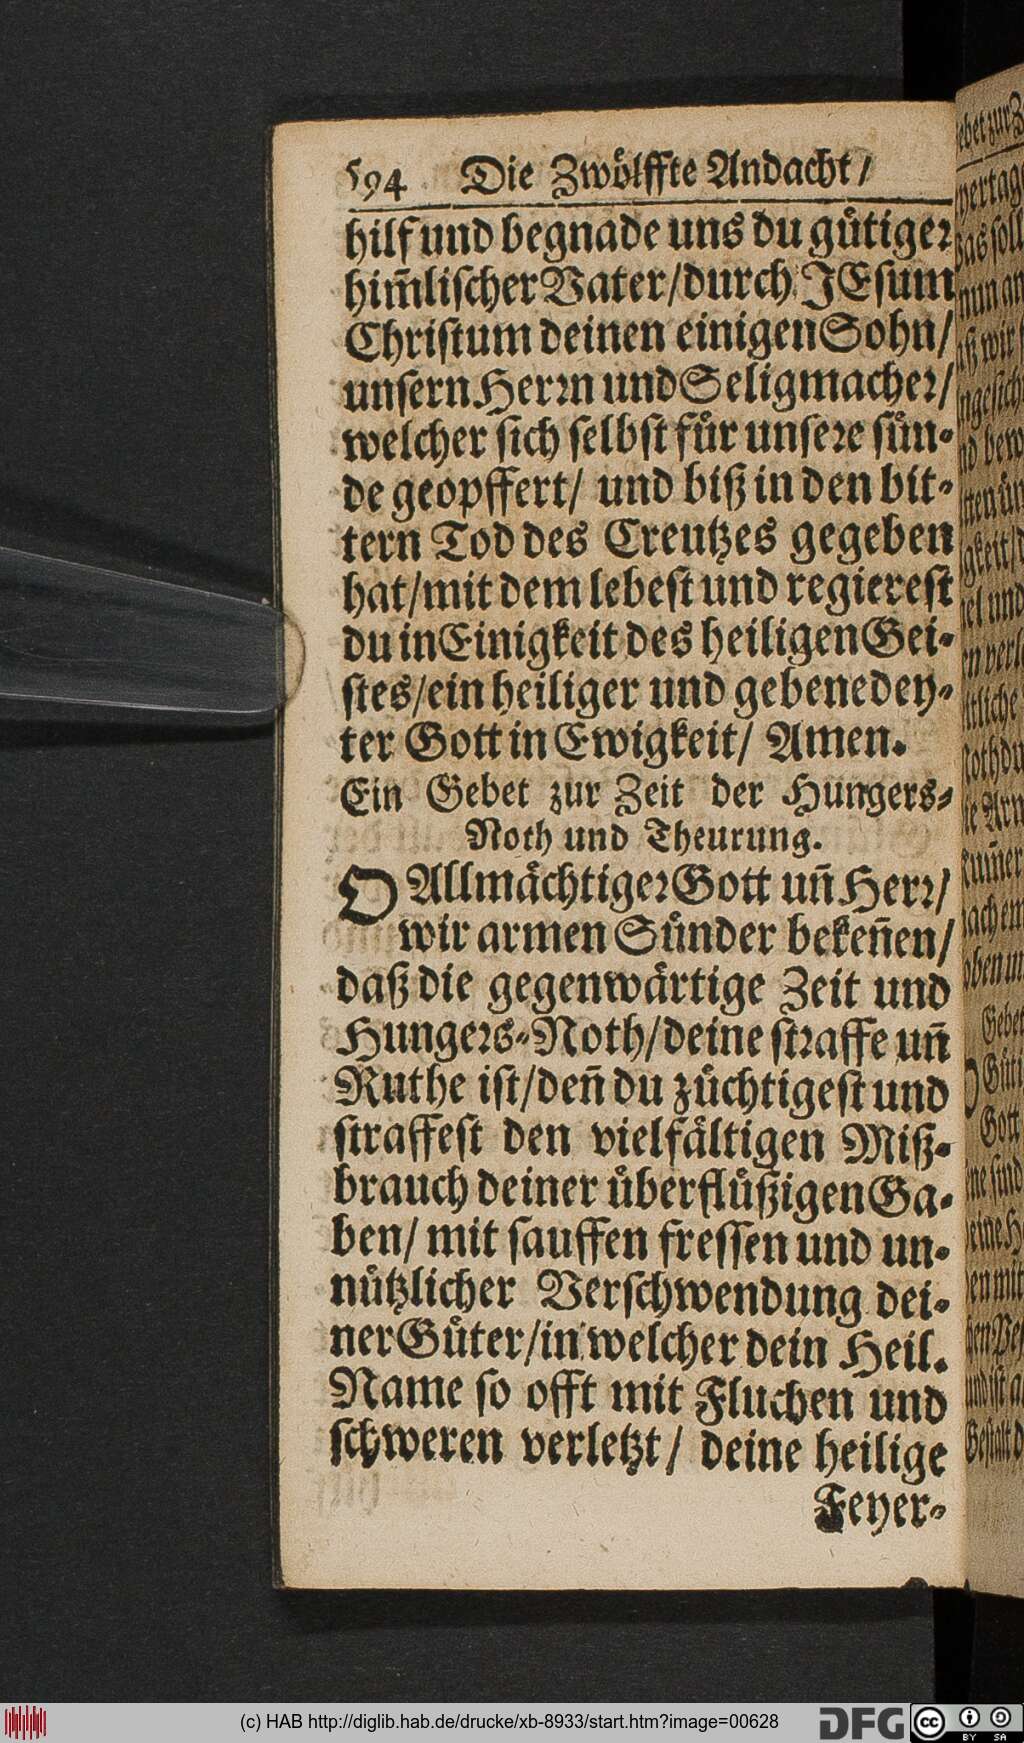 594 Die Zwoͤlffte Andacht/
hilf und begnade uns du guͤtiger
him̃lischer Vater/durch JEsum
Christum deinen einigen Sohn/
unsern Herrn und Seligmacher/
welcher sich selbst fuͤr unsere suͤn-
de geopffert/ und biß in den bit-
tern Tod des Creutzes gegeben
hat/mit dem lebest und regierest
du in Einigkeit des heiligen Gei-
stes/ein heiliger und gebenedey-
ter Gott in Ewigkeit/ Amen.
Ein Gebet zur Zeit der Hungers-
Noth und Theurung.
O Allmaͤchtiger Gott uñ Herr/
wir armen Suͤnder bekeñen/
daß die gegenwaͤrtige Zeit und
Hungers-Noth/deine straffe uñ
Ruthe ist/deñ du zuͤchtigest und
straffest den vielfaͤltigen Miß-
brauch deiner uͤberfluͤßigen Ga-
ben/ mit sauffen fressen und un-
nuͤtzlicher Verschwendung dei-
ner Guͤter/in welcher dein Heil.
Name so offt mit Fluchen und
schweren verletzt/ deine heilige
Feyer-
(c) HAB http://diglib.hab.de/drucke/xb-8933/start.htm?image=00628
DFG cc BY SA